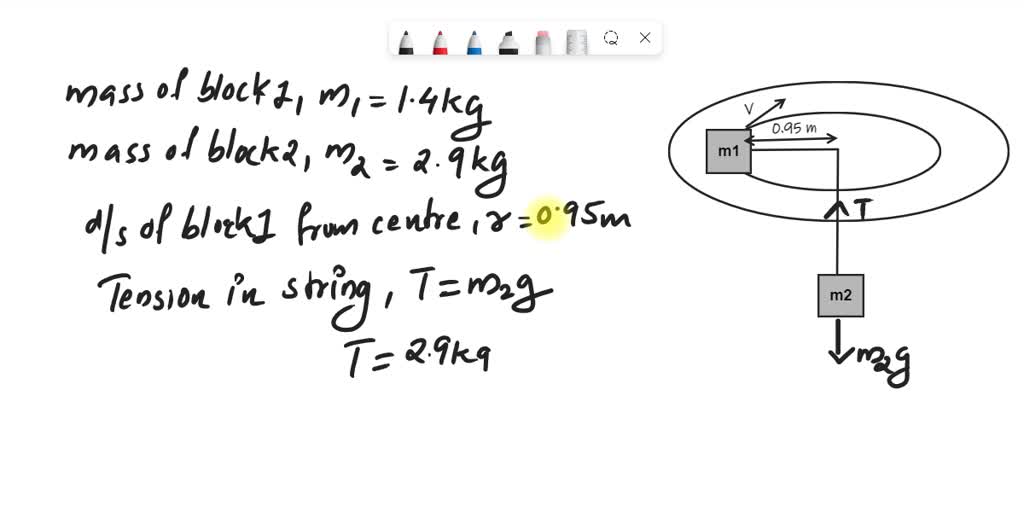 mass of block 1, m₁ = 1.4 kg
mass of block 2, m₂ = 2.9 kg
d/s of block 1 from centre, r = 0.95 m
Tension in string, T = m₂g
T = 2.9 kg
V
0.95 m
m1
T
m2
m₂g